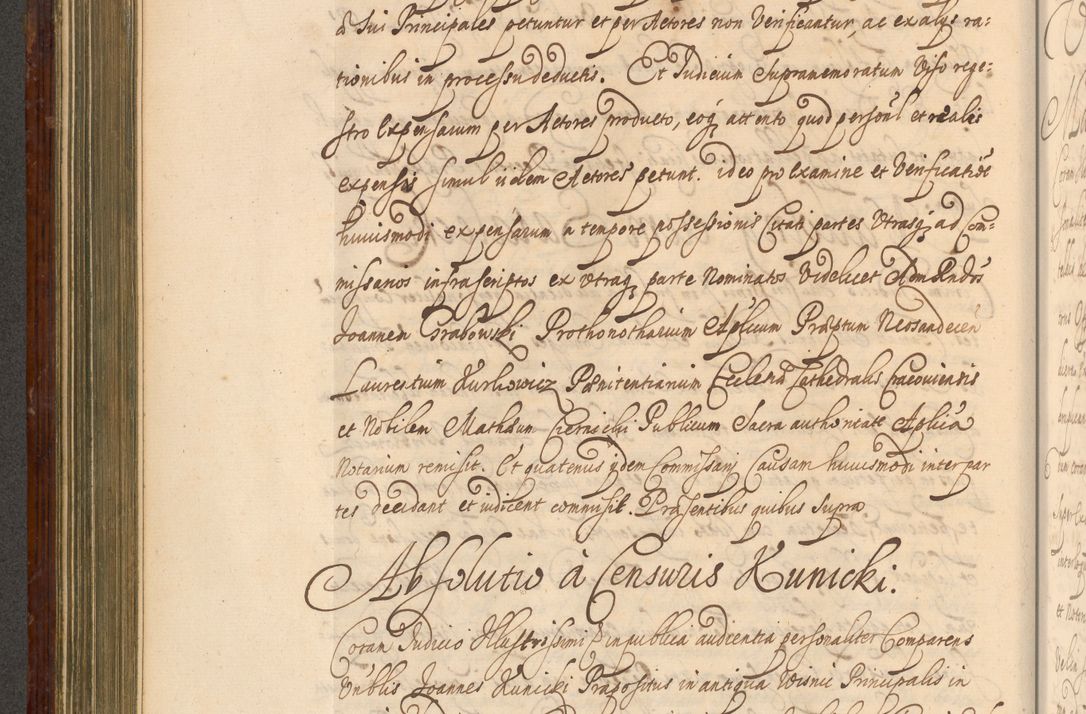 & sui Principales petuntur et per Actores non verificantur, ac ex alys ra:
tionibus in processu deductis. Et Judicium Supramemoratum viso rege:
stro Expensarum per Actores producto, eoq attento quod personal et realis
expensis simul iidem Actores petunt. ideo pro examine et Verificatioe
huiusmodi expensarum a tempore possessionis Citati partes Utrasq ad Com:
missarios infrascriptos ex utraq parte Nominatos Videlicet Adm Rndos
Joannem Grabowski Prothonotharium Aplicum Præptum Neosandecen
Laurentium Kurkowicz Pænitentiarium Ecclesiæ Cathedralis Cracoviensis
et Nobilem Mathæum Czernicki Publicum Sacra authoritate Aplica
Notarium remisit. Et quatenus ydem Commissarij Causam huiusmodi inter par
tes decidant et iudicent commisit. Præsentibus quibus supra
Absolutio à Censuris Kunicki.
Coram Judicio Illustrissimi in publica audientia personaliter Comparens
Vnblis Joannes Kunicki Præpositus in antiqua Wisnic Principalis in